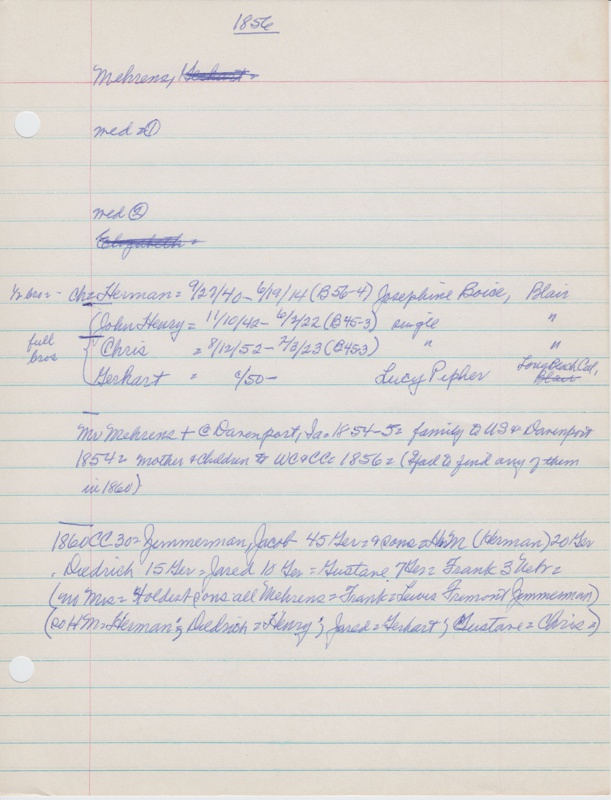 1856
Mehrens, Gerhart =
med = ①
med ②
Elizabeth =
½ bro = - Ch = Herman = 9/27/40 - 6/19/14 (B56-4) Josephine Boice, Blair
John Henry = 11/10/42 - 6/2/22 (B45-3) single "
full bros
Chris = 8/12/52 - 2/3/23 (B45-3) " "
Gerhart = c/50 - Lucy Pipher Long Beach Cal, Blair
Mr Mehrens + @ Davenport, Ia. 1854-5 = family to US & Davenport
1854 = mother & children to WC&CC = 1856 = (Hard to find any of them
in 1860)
1860CC30 = Zimmerman, Jacob 45 Ger = 9 sons = HM (Herman) 20 Ger
, Diedrich 15 Ger = Jared 10 Ger = Gustave 7 Ger = Frank 3 Nebr =
(no Mrs = 4 oldest sons all Mehrens = Frank = Lewis Fremont Zimmerman)
(so HM = Herman; Diedrich = Henry; Jared = Gerhart; Gustave = Chris =)